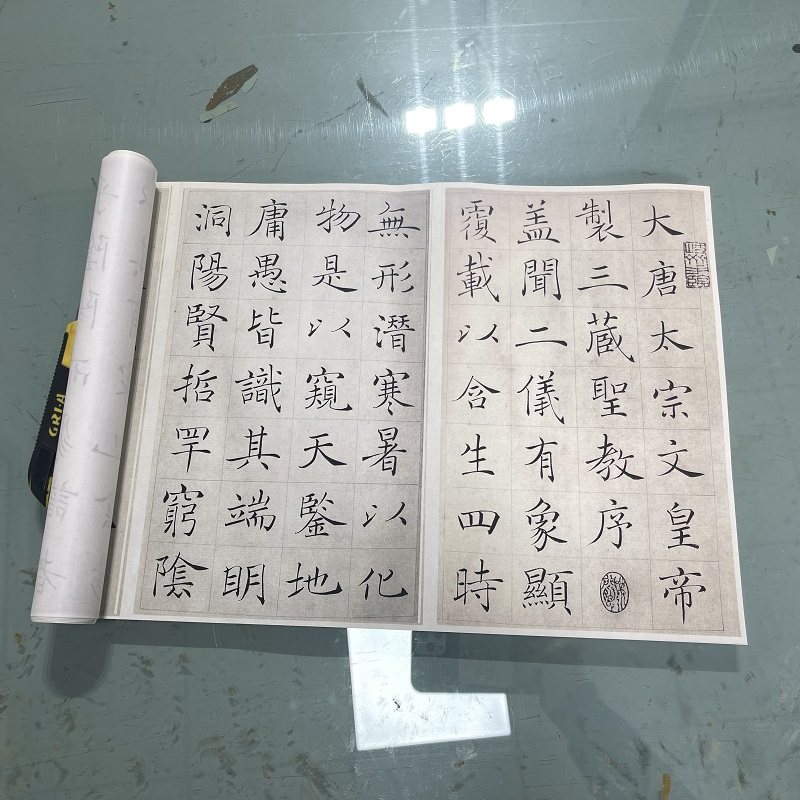 大唐太宗文皇帝
製三蔵聖教序
盖聞二儀有象顯
覆載以含生四時
無形潛寒暑以化
物是以窺天鑒地
庸愚皆識其端明
洞陽賢哲罕窮陰